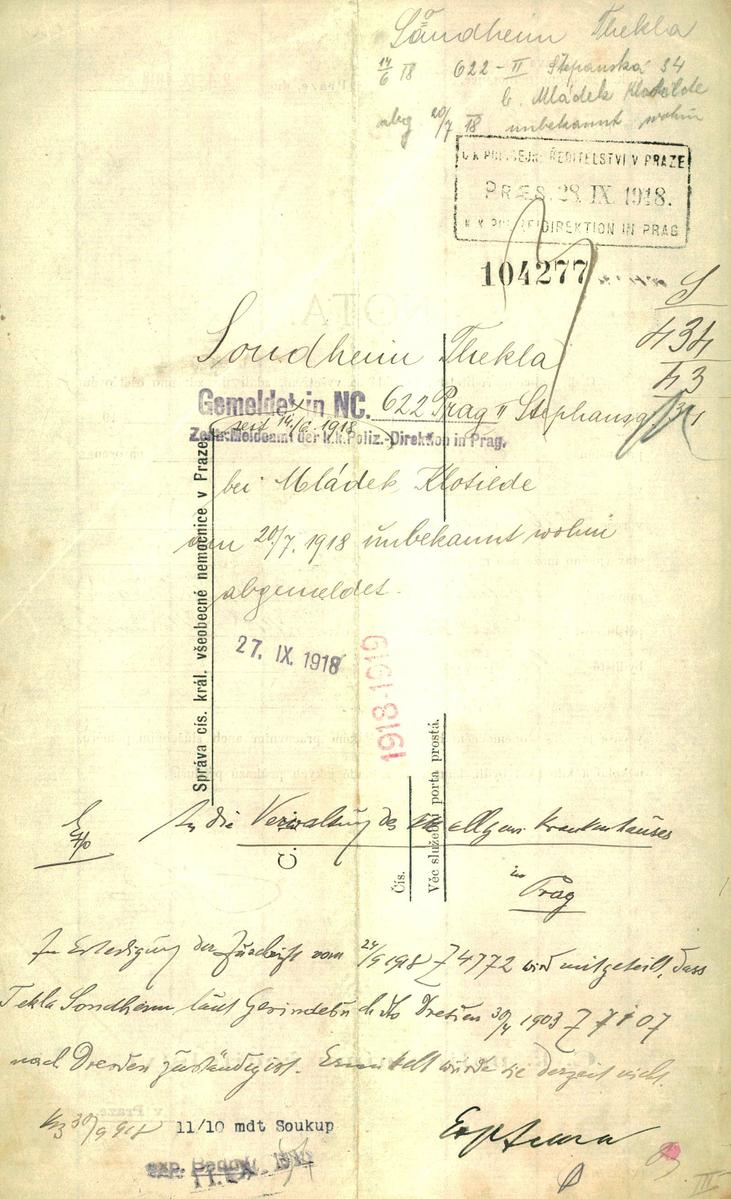 Sondheim Thekla
14/6 18 622-II Štěpanská 34
b. Mládek Klotilde
abg 20/7 18 unbekannt wohin
C. K. POLICEJNÍ ŘEDITELSTVÍ V PRAZE
PRÆS. 28. IX. 1918.
K. K. POLIZEIDIREKTION IN PRAG
104277
S
434
43
Sondheim Thekla
Gemeldet in NC. 622 Prag II Stephansg. 34
seit 14/6. 1918
Zentr. Meldeamt der k.k. Poliz.-Direktion in Prag.
bei Mládek Klotilde
am 20/7. 1918 unbekannt wohin
abgemeldet.
Správa cís. král. všeobecné nemocnice v Praze
27. IX. 1918
1918-1919
Věc služební porta prostá.
Čís.
C.
An die Verwaltung des k.k. allgem. Krankenhauses
in Prag
In Erledigung der Zuschrift vom 24/9 1918 Z 4772 wird mitgeteilt, dass
Tekla Sondheim laut Gesindebuch dto Dresden 30/4 1903 Z 7107
nach Dresden zuständig ist. Ermittelt wurde sie derzeit nicht.
30/9 918
11/10 mdt Soukup
III